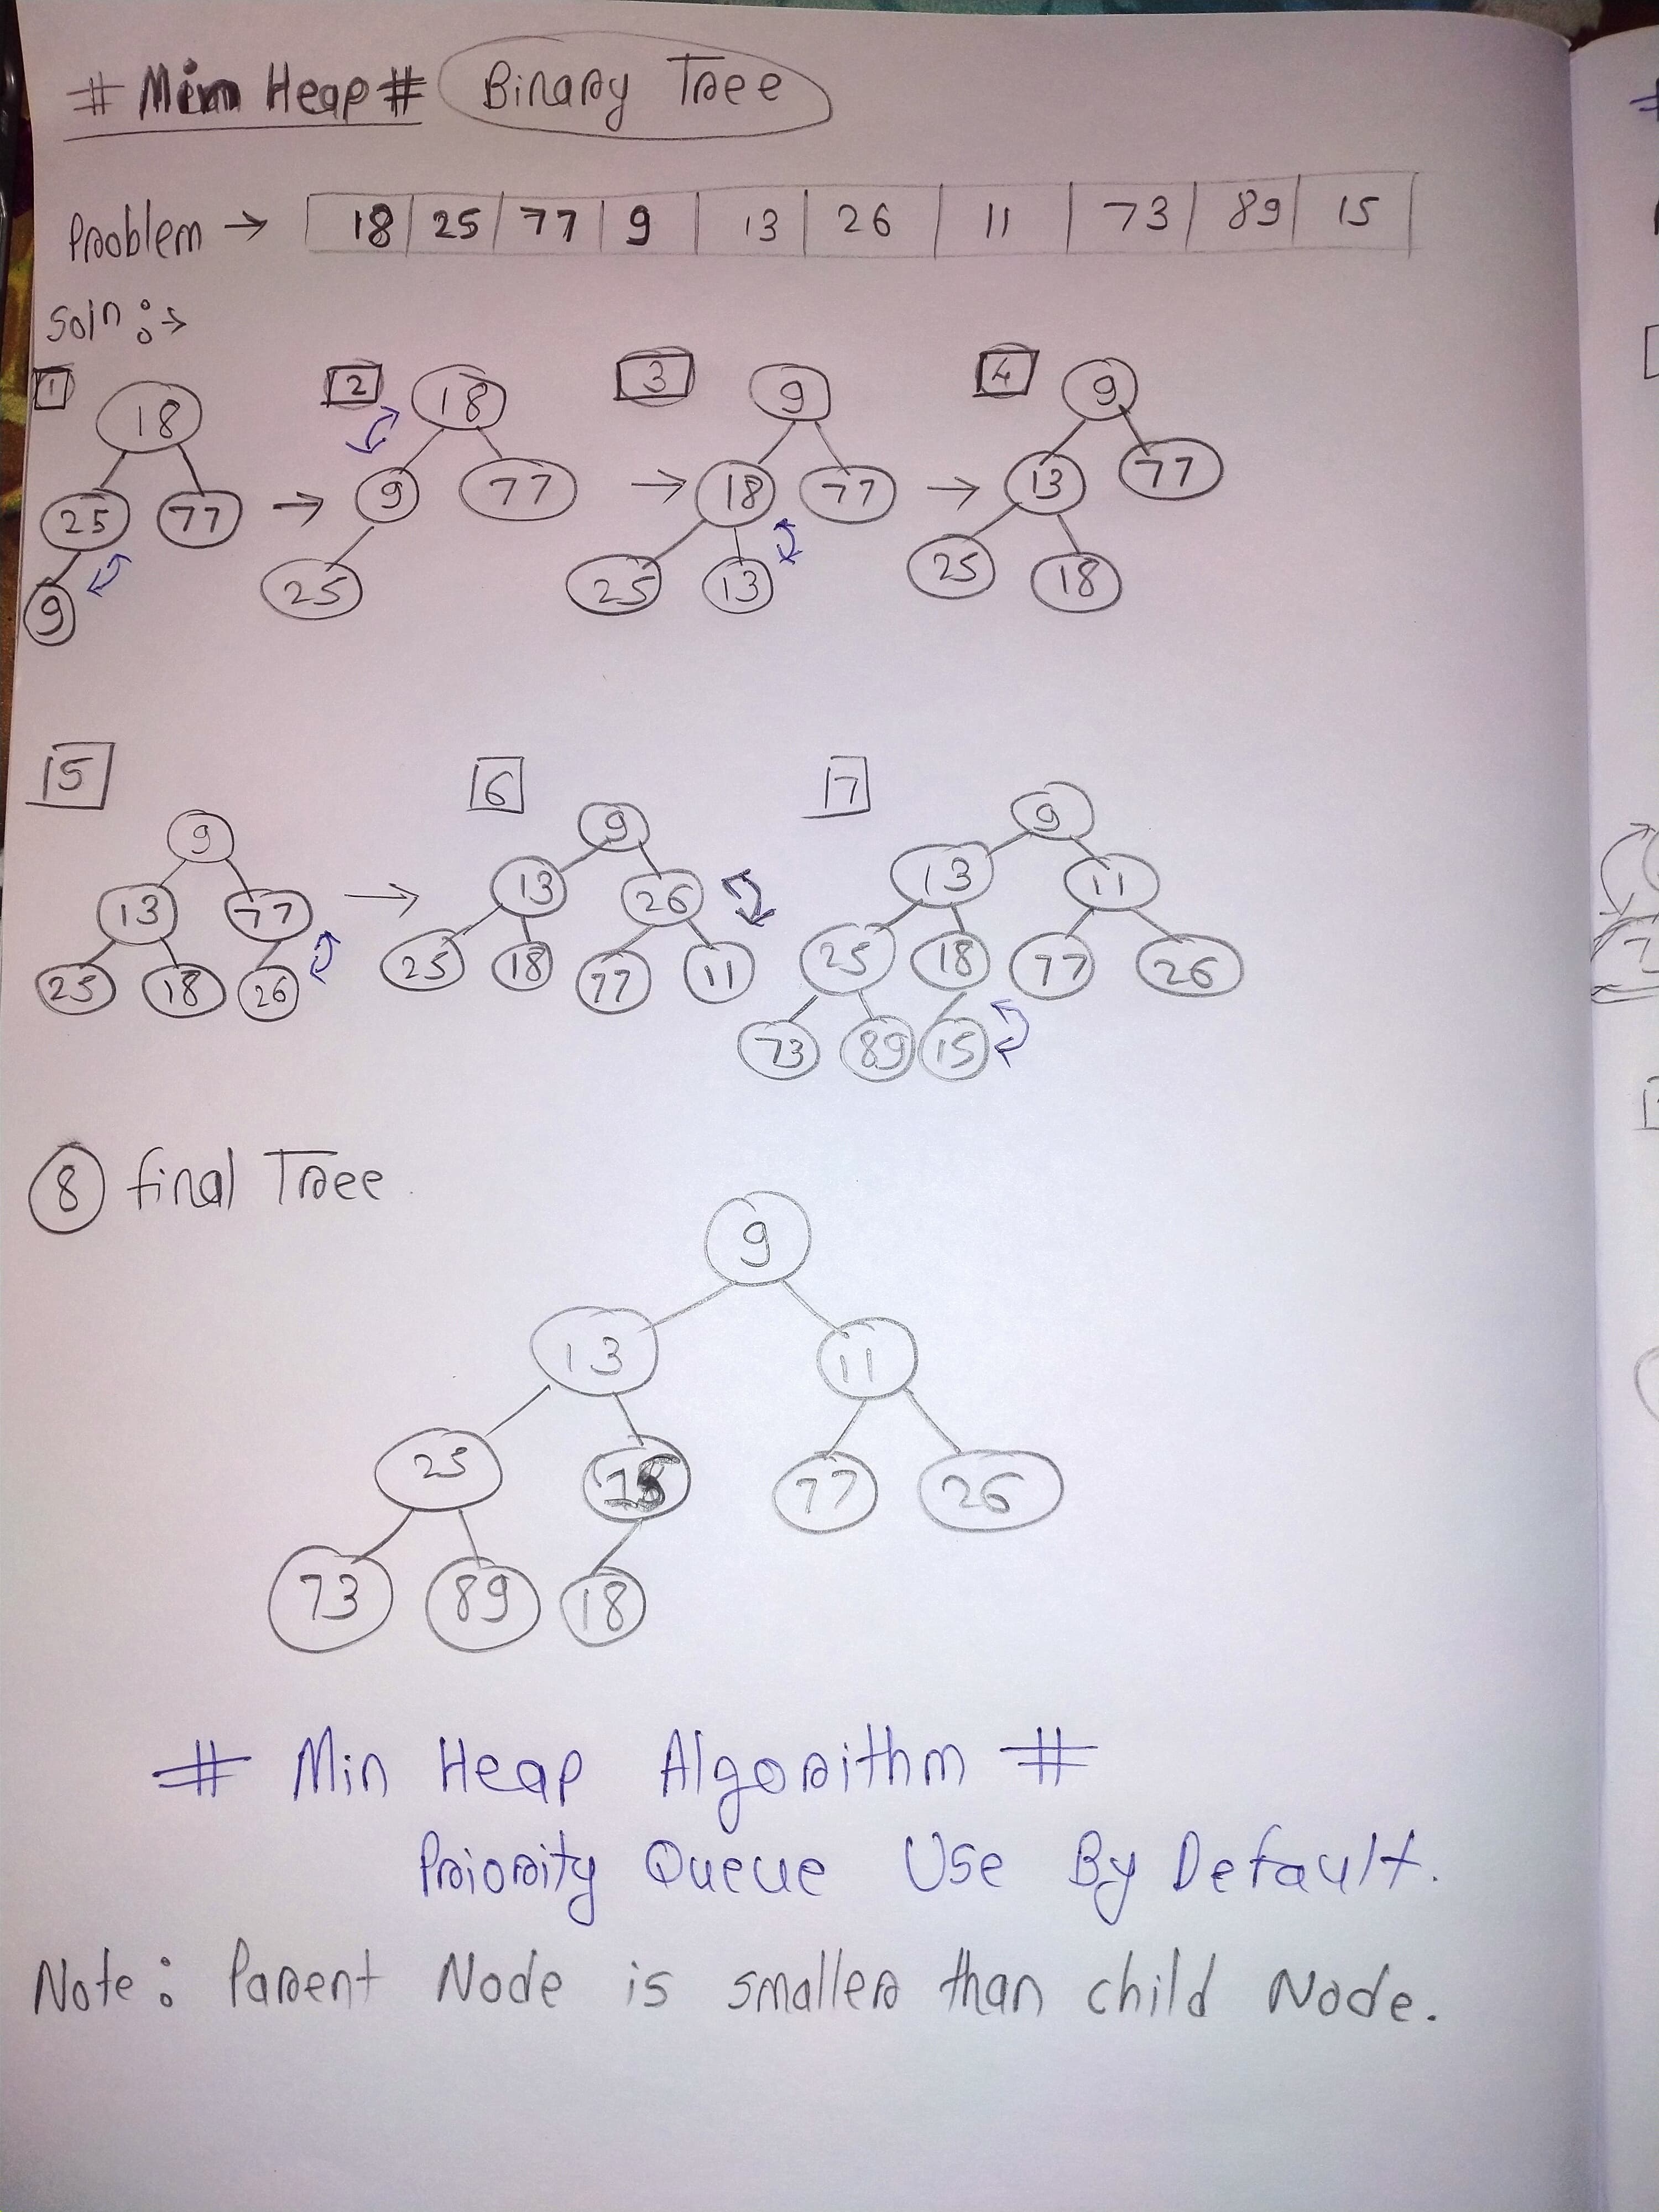 # Min Heap # Binary Tree
Problem → 18 25 77 9 13 26 11 73 89 15
Soln :→
1 2 3 4
18 18 9 9
25 77 → 9 77 → 18 77 → 13 77
9 25 25 13 25 18
5 6 7
9 9 9
13 77 → 13 26 13 11
25 18 26 25 18 77 11 25 18 77 26
73 89 15
8 final Tree
9
13 11
25 15 77 26
73 89 18
# Min Heap Algorithm #
Priority Queue Use By Default.
Note: Parent Node is smaller than child Node.